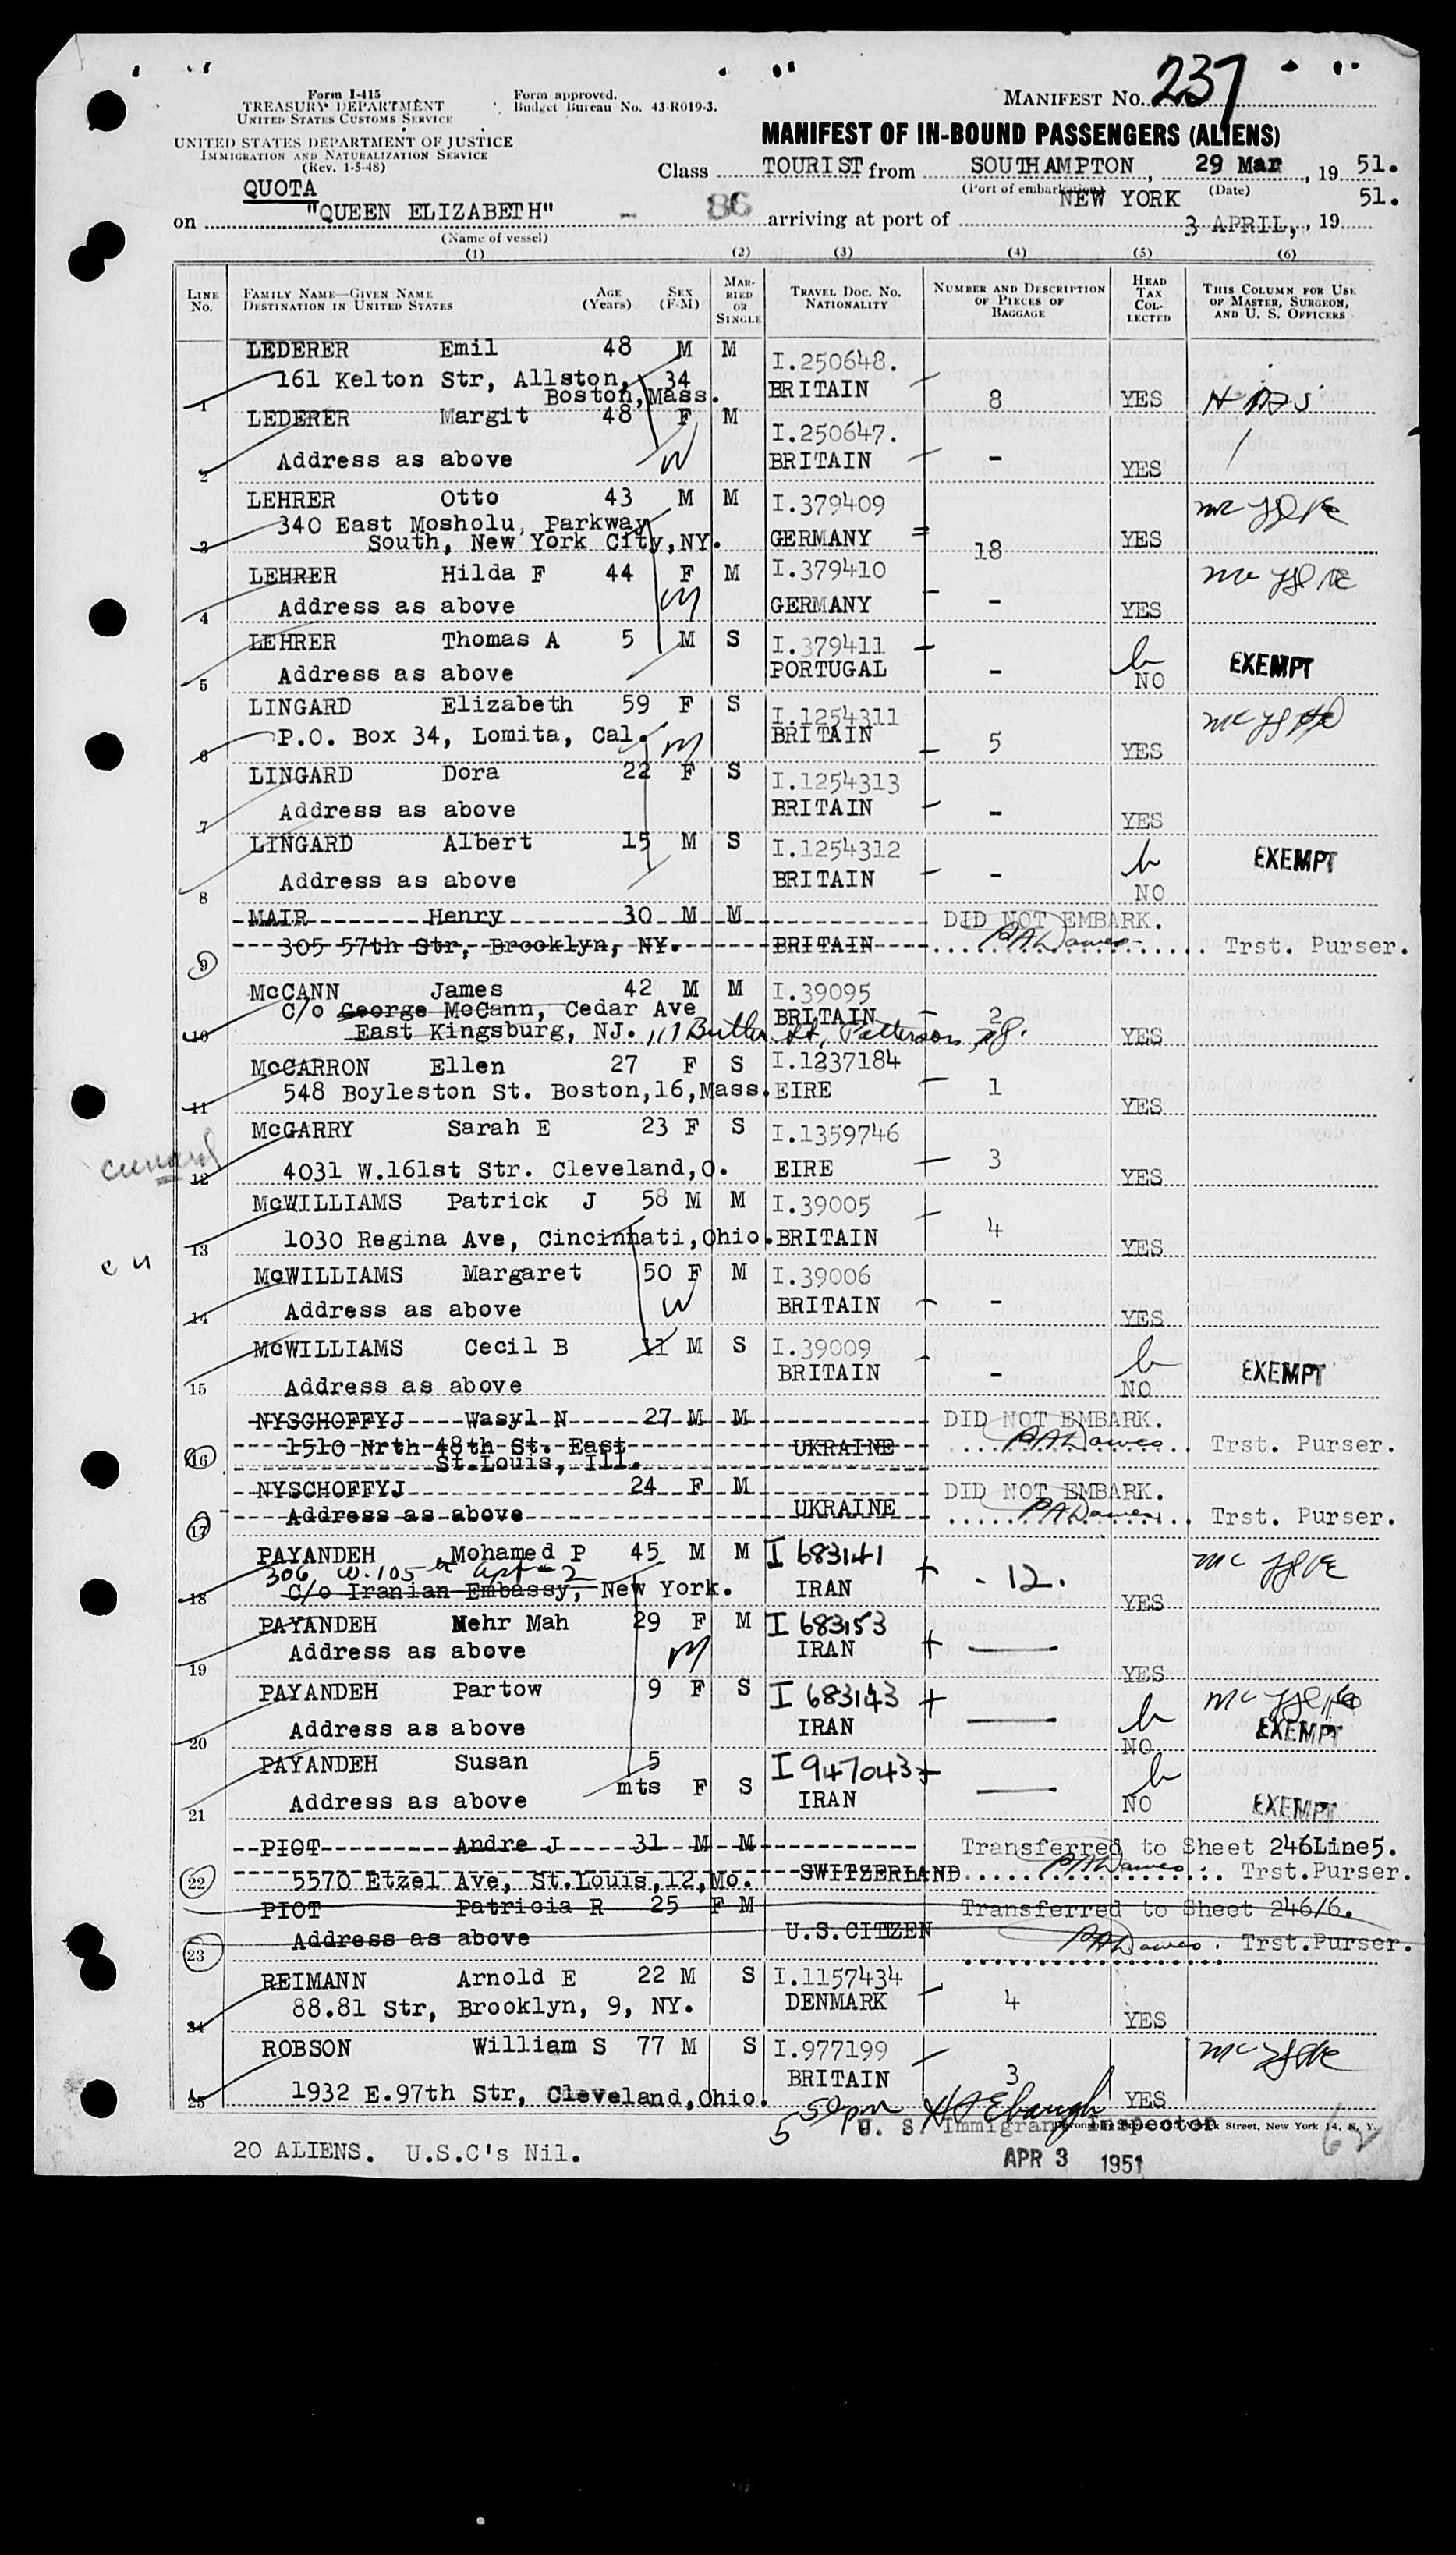 MANIFEST NO. 237
Form I-415
TREASURY DEPARTMENT
UNITED STATES CUSTOMS SERVICE
Form approved.
Budget Bureau No. 43-R019-3.
UNITED STATES DEPARTMENT OF JUSTICE
IMMIGRATION AND NATURALIZATION SERVICE
(Rev. 1-5-48)
MANIFEST OF IN-BOUND PASSENGERS (ALIENS)
Class TOURIST from SOUTHAMPTON, 29 Mar, 19 51.
(Port of embarkation) (Date)
QUOTA
on "QUEEN ELIZABETH" - 86 arriving at port of NEW YORK 3 APRIL, , 19 51.
(Name of vessel)
(1) (2) (3) (4) (5) (6)
LINE No. FAMILY NAME—GIVEN NAME DESTINATION IN UNITED STATES AGE (Years) SEX (F-M) MARRIED OR SINGLE TRAVEL DOC. NO. NATIONALITY NUMBER AND DESCRIPTION OF PIECES OF BAGGAGE HEAD TAX COLLECTED THIS COLUMN FOR USE OF MASTER, SURGEON, AND U. S. OFFICERS
LEDERER Emil 48 M M I.250648.
161 Kelton Str, Allston, 34 BRITAIN
1 Boston, Mass. 8 YES
LEDERER Margit 48 F M I.250647.
2 Address as above BRITAIN - YES
LEHRER Otto 43 M M I.379409
340 East Mosholu, Parkway
3 South, New York City, NY. GERMANY 18 YES
LEHRER Hilda F 44 F M I.379410
4 Address as above GERMANY - YES
LEHRER Thomas A 5 M S I.379411
5 Address as above PORTUGAL - NO EXEMPT
LINGARD Elizabeth 59 F S I.1254311
6 P.O. Box 34, Lomita, Cal. BRITAIN 5 YES
LINGARD Dora 22 F S I.1254313
7 Address as above BRITAIN - YES
LINGARD Albert 15 M S I.1254312
8 Address as above BRITAIN - NO EXEMPT
MAIR Henry 30 M M DID NOT EMBARK.
9 305 57th Str, Brooklyn, NY. BRITAIN PADawes Trst. Purser.
McCANN James 42 M M I.39095
C/o George McCann, Cedar Ave BRITAIN 2
10 East Kingsburg, NJ. 117 Butler St, Patterson NJ. YES
McCARRON Ellen 27 F S I.1237184
11 548 Boyleston St. Boston,16,Mass. EIRE 1 YES
McGARRY Sarah E 23 F S I.1359746
cunard
12 4031 W.161st Str. Cleveland,O. EIRE 3 YES
McWILLIAMS Patrick J 58 M M I.39005
13 1030 Regina Ave, Cincinnati,Ohio. BRITAIN 4 YES
McWILLIAMS Margaret 50 F M I.39006
14 Address as above BRITAIN - YES
McWILLIAMS Cecil B 11 M S I.39009
15 Address as above BRITAIN - NO EXEMPT
NYSGHOFFYJ Wasyl N 27 M M DID NOT EMBARK.
16 1510 Nrth 48th St. East UKRAINE PADawes Trst. Purser.
St.Louis, Ill.
NYSCHOFFYJ 24 F M DID NOT EMBARK.
17 Address as above UKRAINE PADawes Trst. Purser.
PAYANDEH Mohamed P 45 M M I 683141
306 W. 105 Apt 2
18 C/o Iranian Embassy, New York. IRAN 12. YES
PAYANDEH Mehr Mah 29 F M I 683153
19 Address as above IRAN YES
PAYANDEH Partow 9 F S I 683143
20 Address as above IRAN NO EXEMPT
PAYANDEH Susan 5 mts F S I 947043
21 Address as above IRAN NO EXEMPT
PIOT Andre J 31 M M Transferred to Sheet 246Line5.
22 5570 Etzel Ave, St.Louis,12,Mo. SWITZERLAND PADawes Trst.Purser.
PIOT Patricia R 25 F M Transferred to Sheet 246/6.
23 Address as above U.S.CITIZEN PADawes. Trst.Purser.
REIMANN Arnold E 22 M S I.1157434
24 88.81 Str, Brooklyn, 9, NY. DENMARK 4 YES
ROBSON William S 77 M S I.977199
25 1932 E.97th Str, Cleveland,Ohio. BRITAIN 3 YES
5 50pm
U. S. Immigrant Inspector Street, New York 14, N. Y.
20 ALIENS. U.S.C's Nil. APR 3 1951